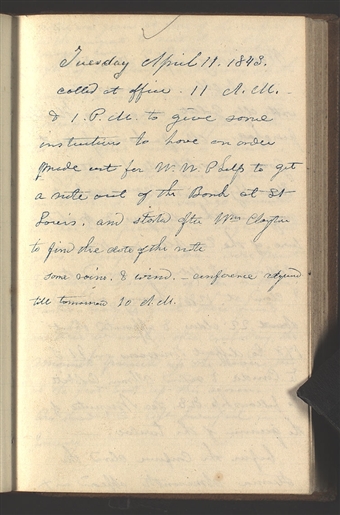 Tuesday April 11. 1843.
called at office. 11 A.M. -
& 1. P.M. to give some
instructions to have an order
made out for W. W. Phelps to get
a note out of the Bank at St
Louis. and stated after Wm Clayton
to find the date of the note
some rain. & wind. - conference adjourned
till tomorrow 10 A.M.